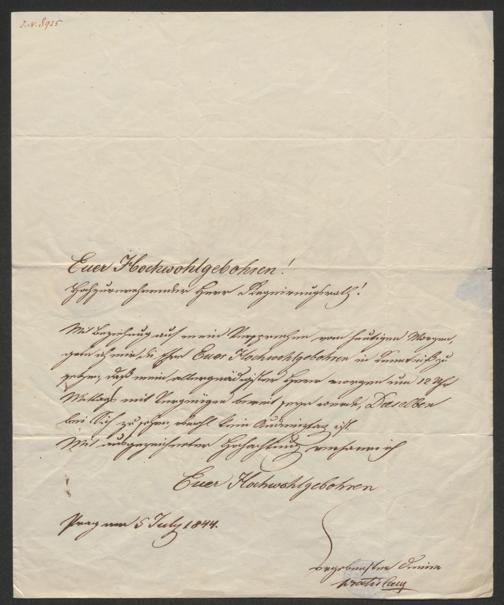 I.N. 8925
Euer Hochwohlgebohren!
Hochzuverehrender Herr Regierungsrath!
Mit Beziehung auf mein Versprechen vom heutigen Morgen,
gebe ich mir die Ehre Euer Hochwohlgebohren in Kenntniß zu
setzen, daß mein allergnädigster Herr morgen um 12 Uhr
Mittags mit Vergnügen bereit seyn werde, Dieselben
bei Sich zu sehen, obwohl kein Audienztag ist.
Mit ausgezeichneter Hochachtung verharre ich
Euer Hochwohlgebohren
Prag am 5 July 1844.
ergebenster Diener